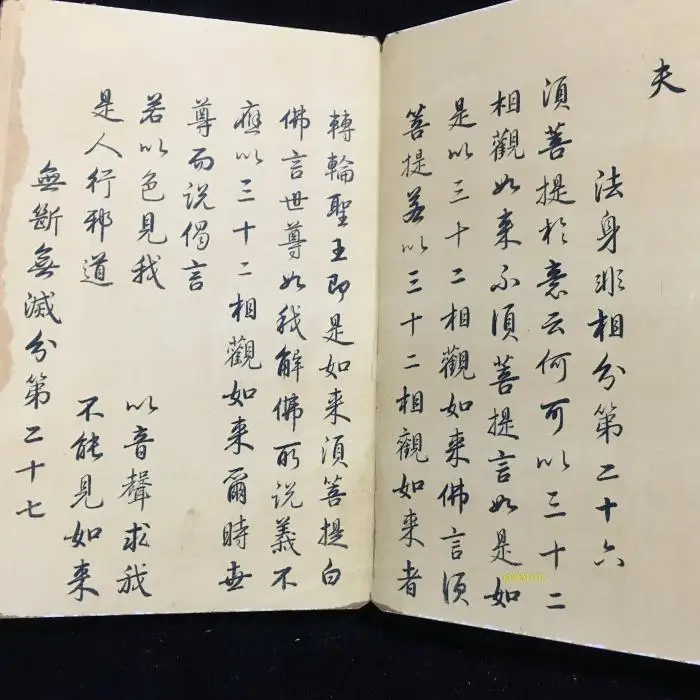 夫
法身非相分第二十六
須菩提於意云何可以三十二
相觀如来不須菩提言如是如
是以三十二相觀如来佛言須
菩提若以三十二相觀如来者
轉輪聖王即是如来須菩提白
佛言世尊如我解佛所說義不
應以三十二相觀如来爾時世
尊而說偈言
若以色見我 以音聲求我
是人行邪道 不能見如来
無斷無滅分第二十七